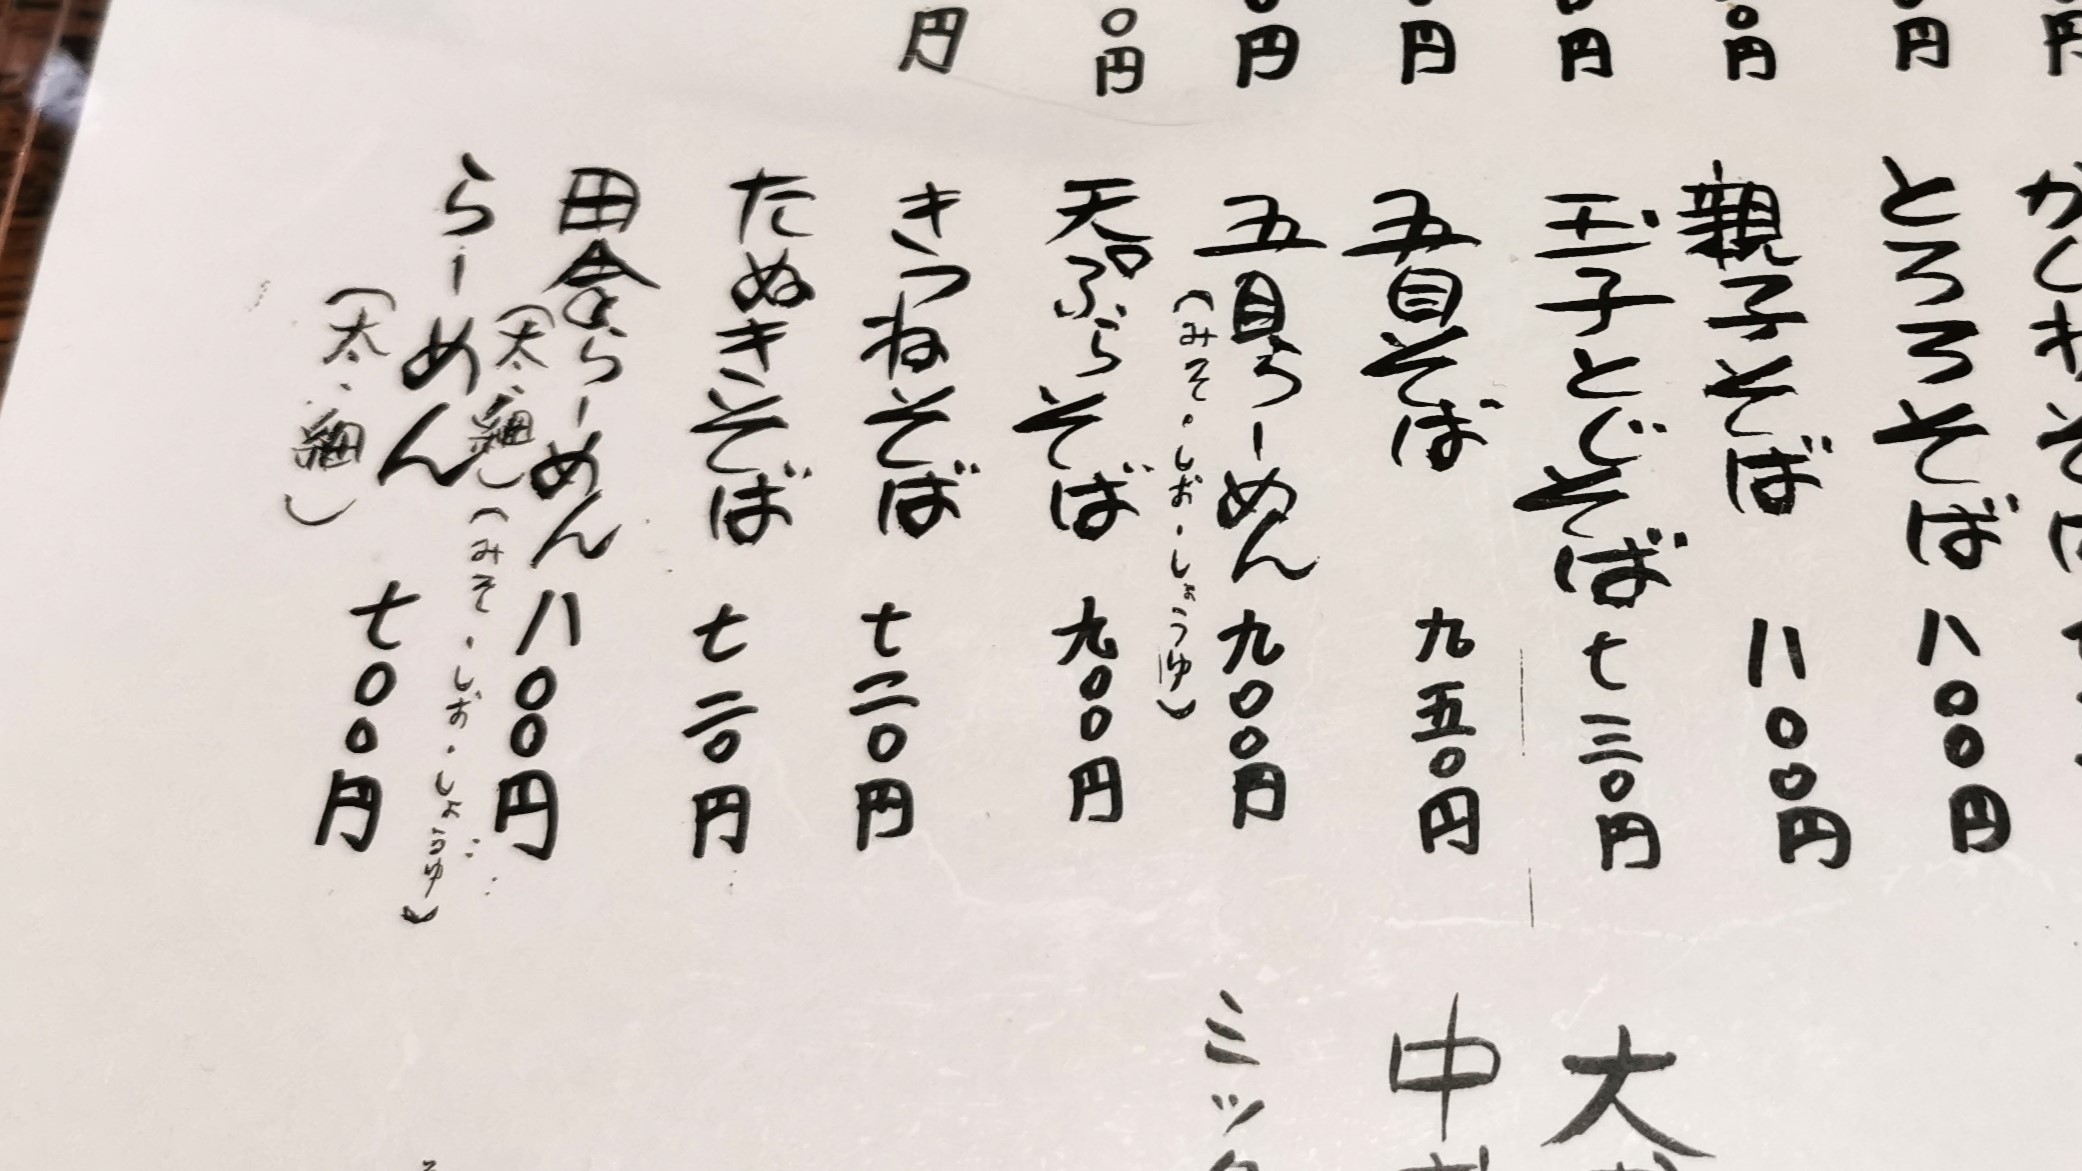 円
円
円
円
〇円
円
〇円
円
とろろそば 八〇〇円
親子そば 八〇〇円
玉子とじそば 七三〇円
五目そば 九五〇円
五目らーめん 九〇〇円
(みそ・しお・しょうゆ)
天ぷらそば 九〇〇円
きつねそば 七二〇円
たぬきそば 七二〇円
田舎らーめん 八〇〇円
(太・細)(みそ・しお・しょうゆ)
らーめん 七〇〇円
(太・細)
大
中
ミック